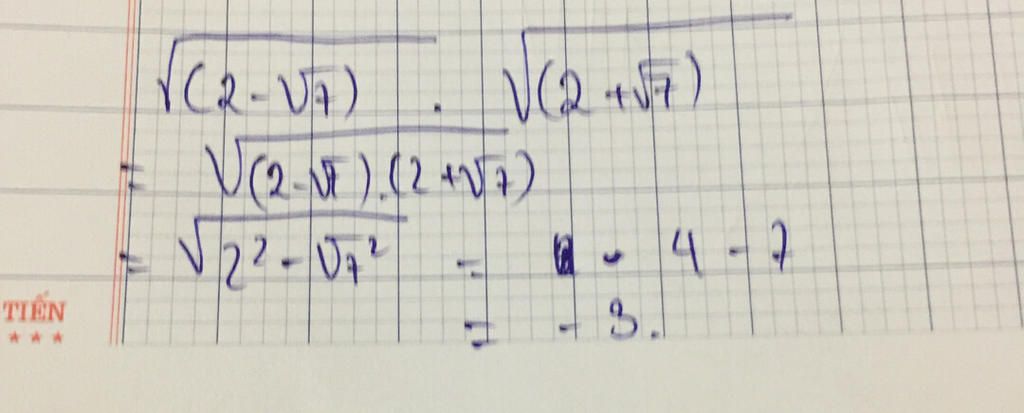 √(2 - √7) . √(2 + √7)
= √(2 - √7).(2 + √7)
= √2² - √7² = - 4 - 7
= - 3.
TIẾN
★ ★ ★